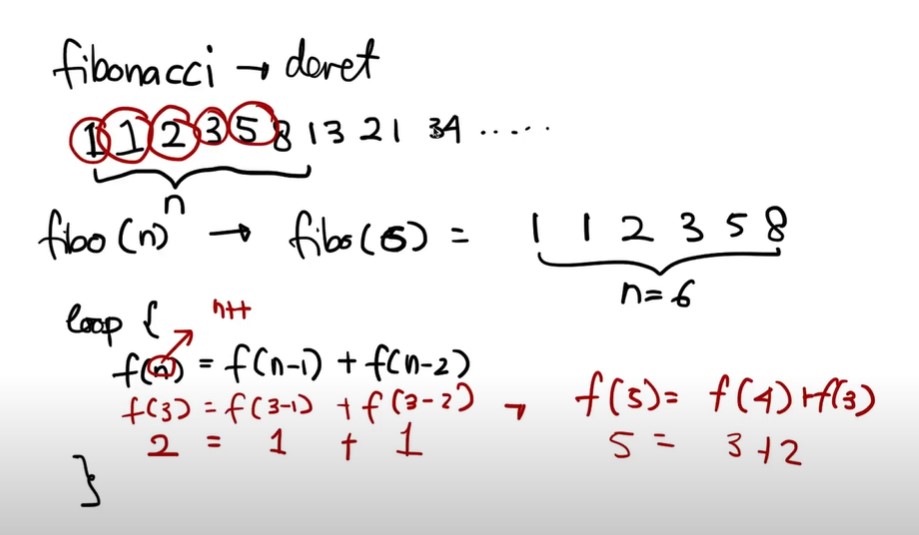 fibonacci → deret
1 1 2 3 5 8 13 21 34 .....
n
fibo (n) → fibo(6) = 1 1 2 3 5 8
n=6
loop { n++
f(n) = f(n-1) + f(n-2)
f(3) = f(3-1) + f(3-2) → f(5) = f(4)+f(3)
2 = 1 + 1 5 = 3+2
}